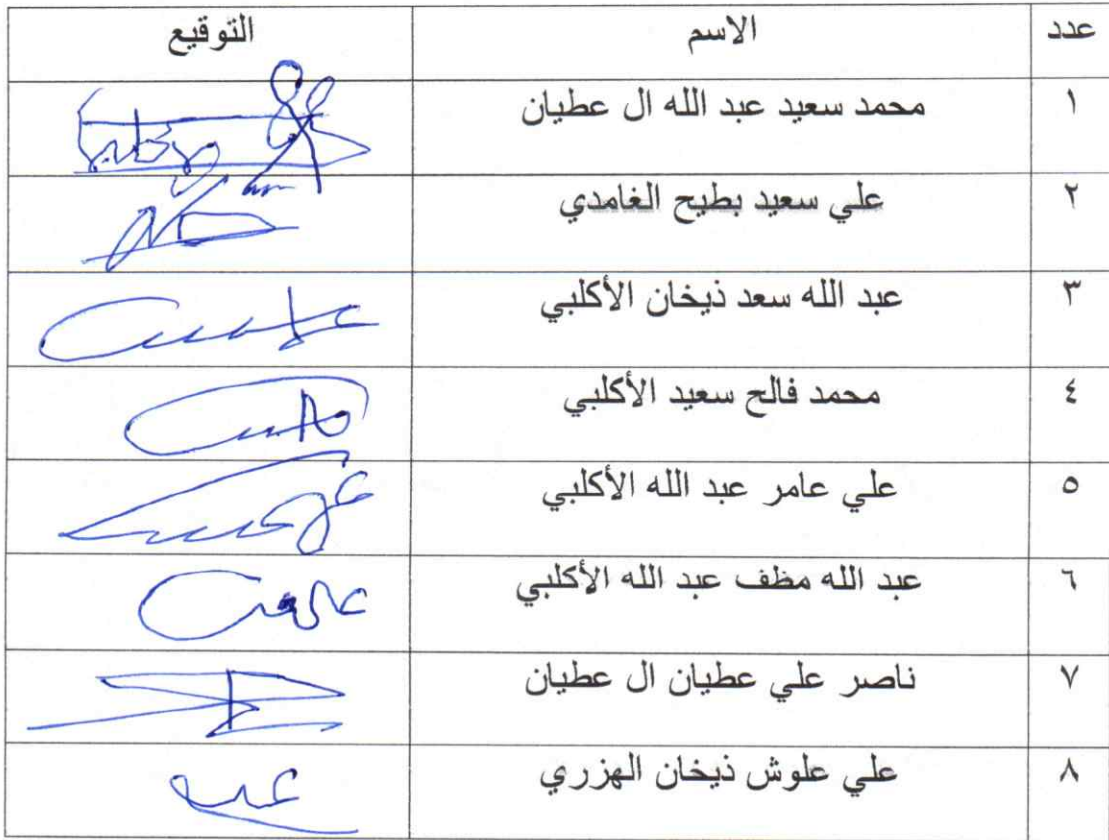 عدد الاسم التوقيع
١ محمد سعيد عبد الله ال عطيان
٢ علي سعيد بطيح الغامدي
٣ عبد الله سعد ذيخان الأكلبي
٤ محمد فالح سعيد الأكلبي
٥ علي عامر عبد الله الأكلبي
٦ عبد الله مظف عبد الله الأكلبي
٧ ناصر علي عطيان ال عطيان
٨ علي علوش ذيخان الهزري